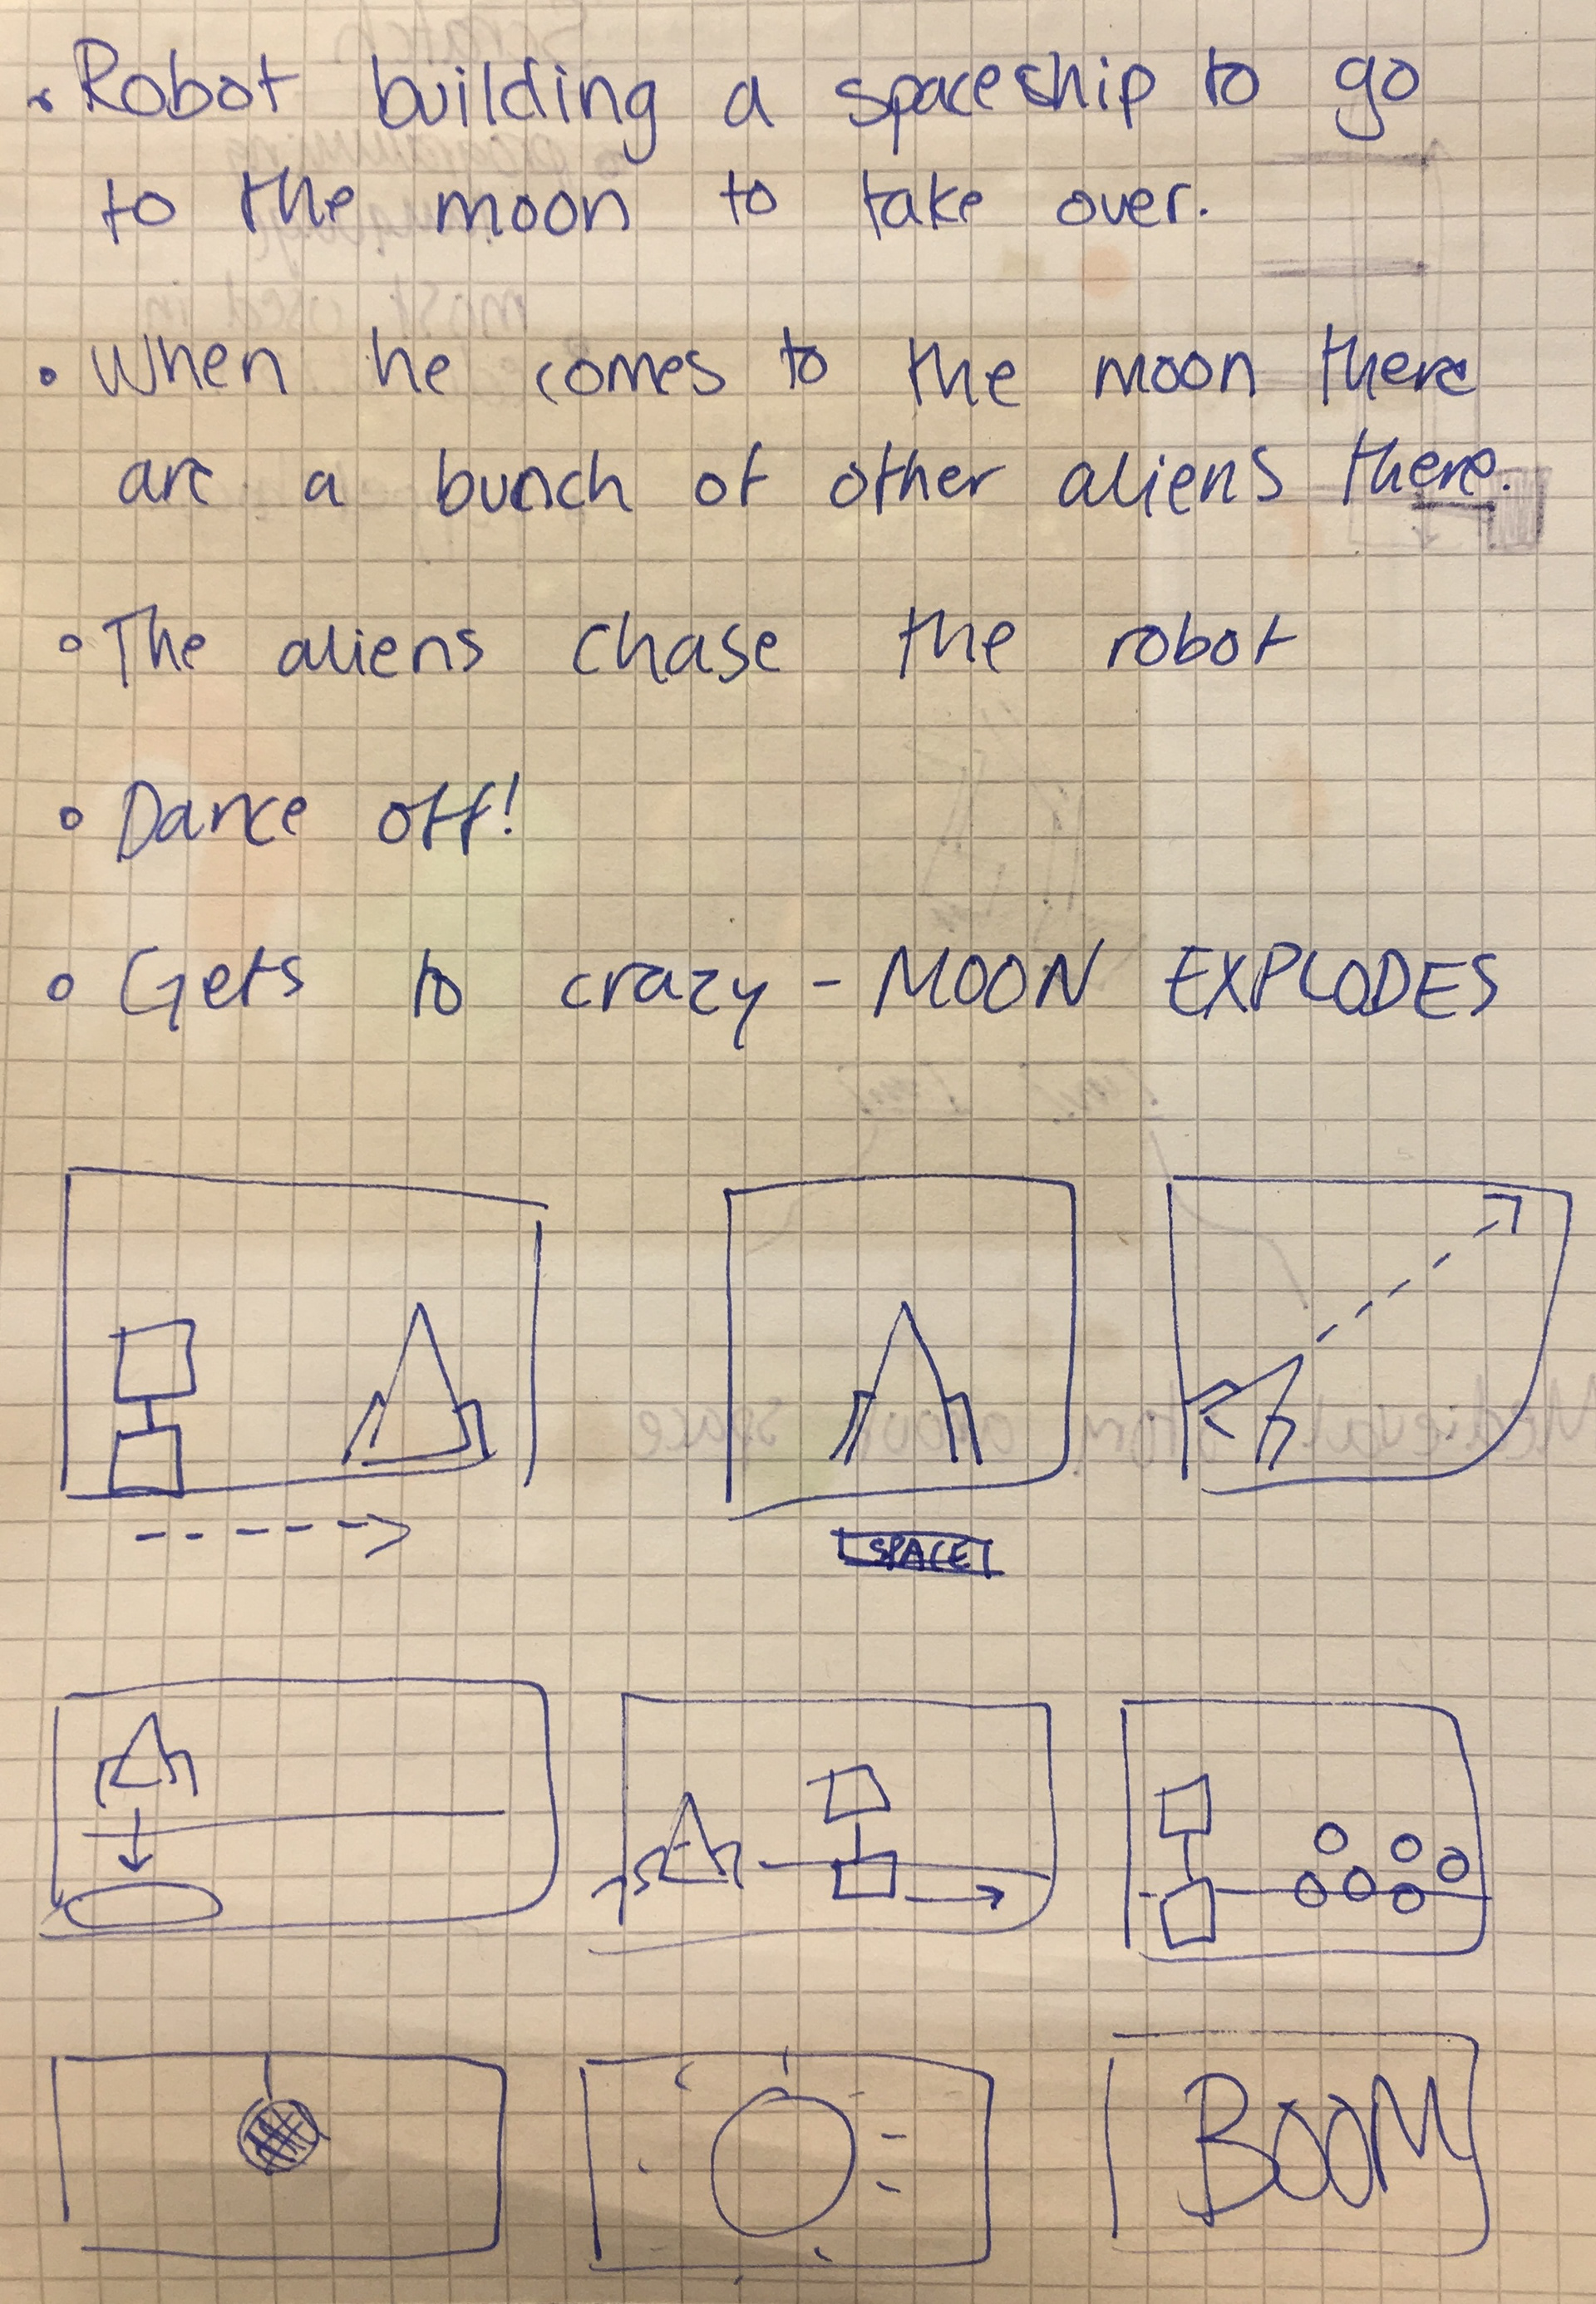 • Robot building a spaceship to go
to the moon to take over.
• When he comes to the moon there
are a bunch of other aliens there.
• The aliens chase the robot
• Dance off!
• Gets to crazy - MOON EXPLODES
SPACE
BOOM